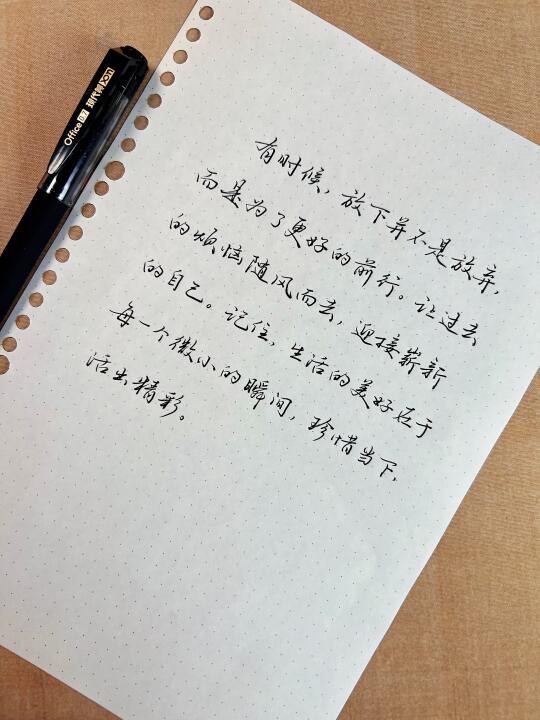 有时候，放下并不是放弃，
而是为了更好的前行。让过去
的烦恼随风而去，迎接崭新
的自己。记住，生活的美好在于
每一个微小的瞬间，珍惜当下，
活出精彩。
Office 0.7 现代美 Yom